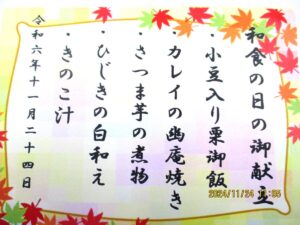 和食の日の御献立
・小豆入り栗御飯
・カレイの幽庵焼き
・さつま芋の煮物
・ひじきの白和え
・きのこ汁
令和六年十一月二十四日
2024/11/24